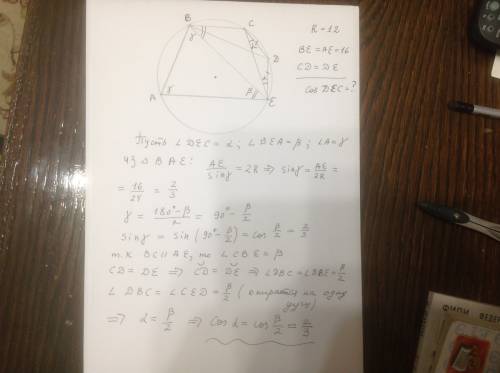 B
C
R = 12
BE = AE = 16
CD = DE
cos DEC = ?
γ
α
D
A
γ
β
α
E
Пусть ∠DEC = α; ∠BEA = β; ∠A = γ
Из △BAE: AE/sinγ = 2R ⇒ sinγ = AE/2R =
= 16/24 = 2/3
γ = (180° − β)/2 = 90° − β/2
sinγ = sin(90° − β/2) = cos β/2 = 2/3
т.к BC∥AE, то ∠CBE = β
CD = DE ⇒ ◡CD = ◡DE ⇒ ∠DBC = ∠DBE = β/2
∠DBC = ∠CED = β/2 (опирается на одну
дугу)
⇒ α = β/2 ⇒ cos α = cos β/2 = 2/3
ФИЛИ